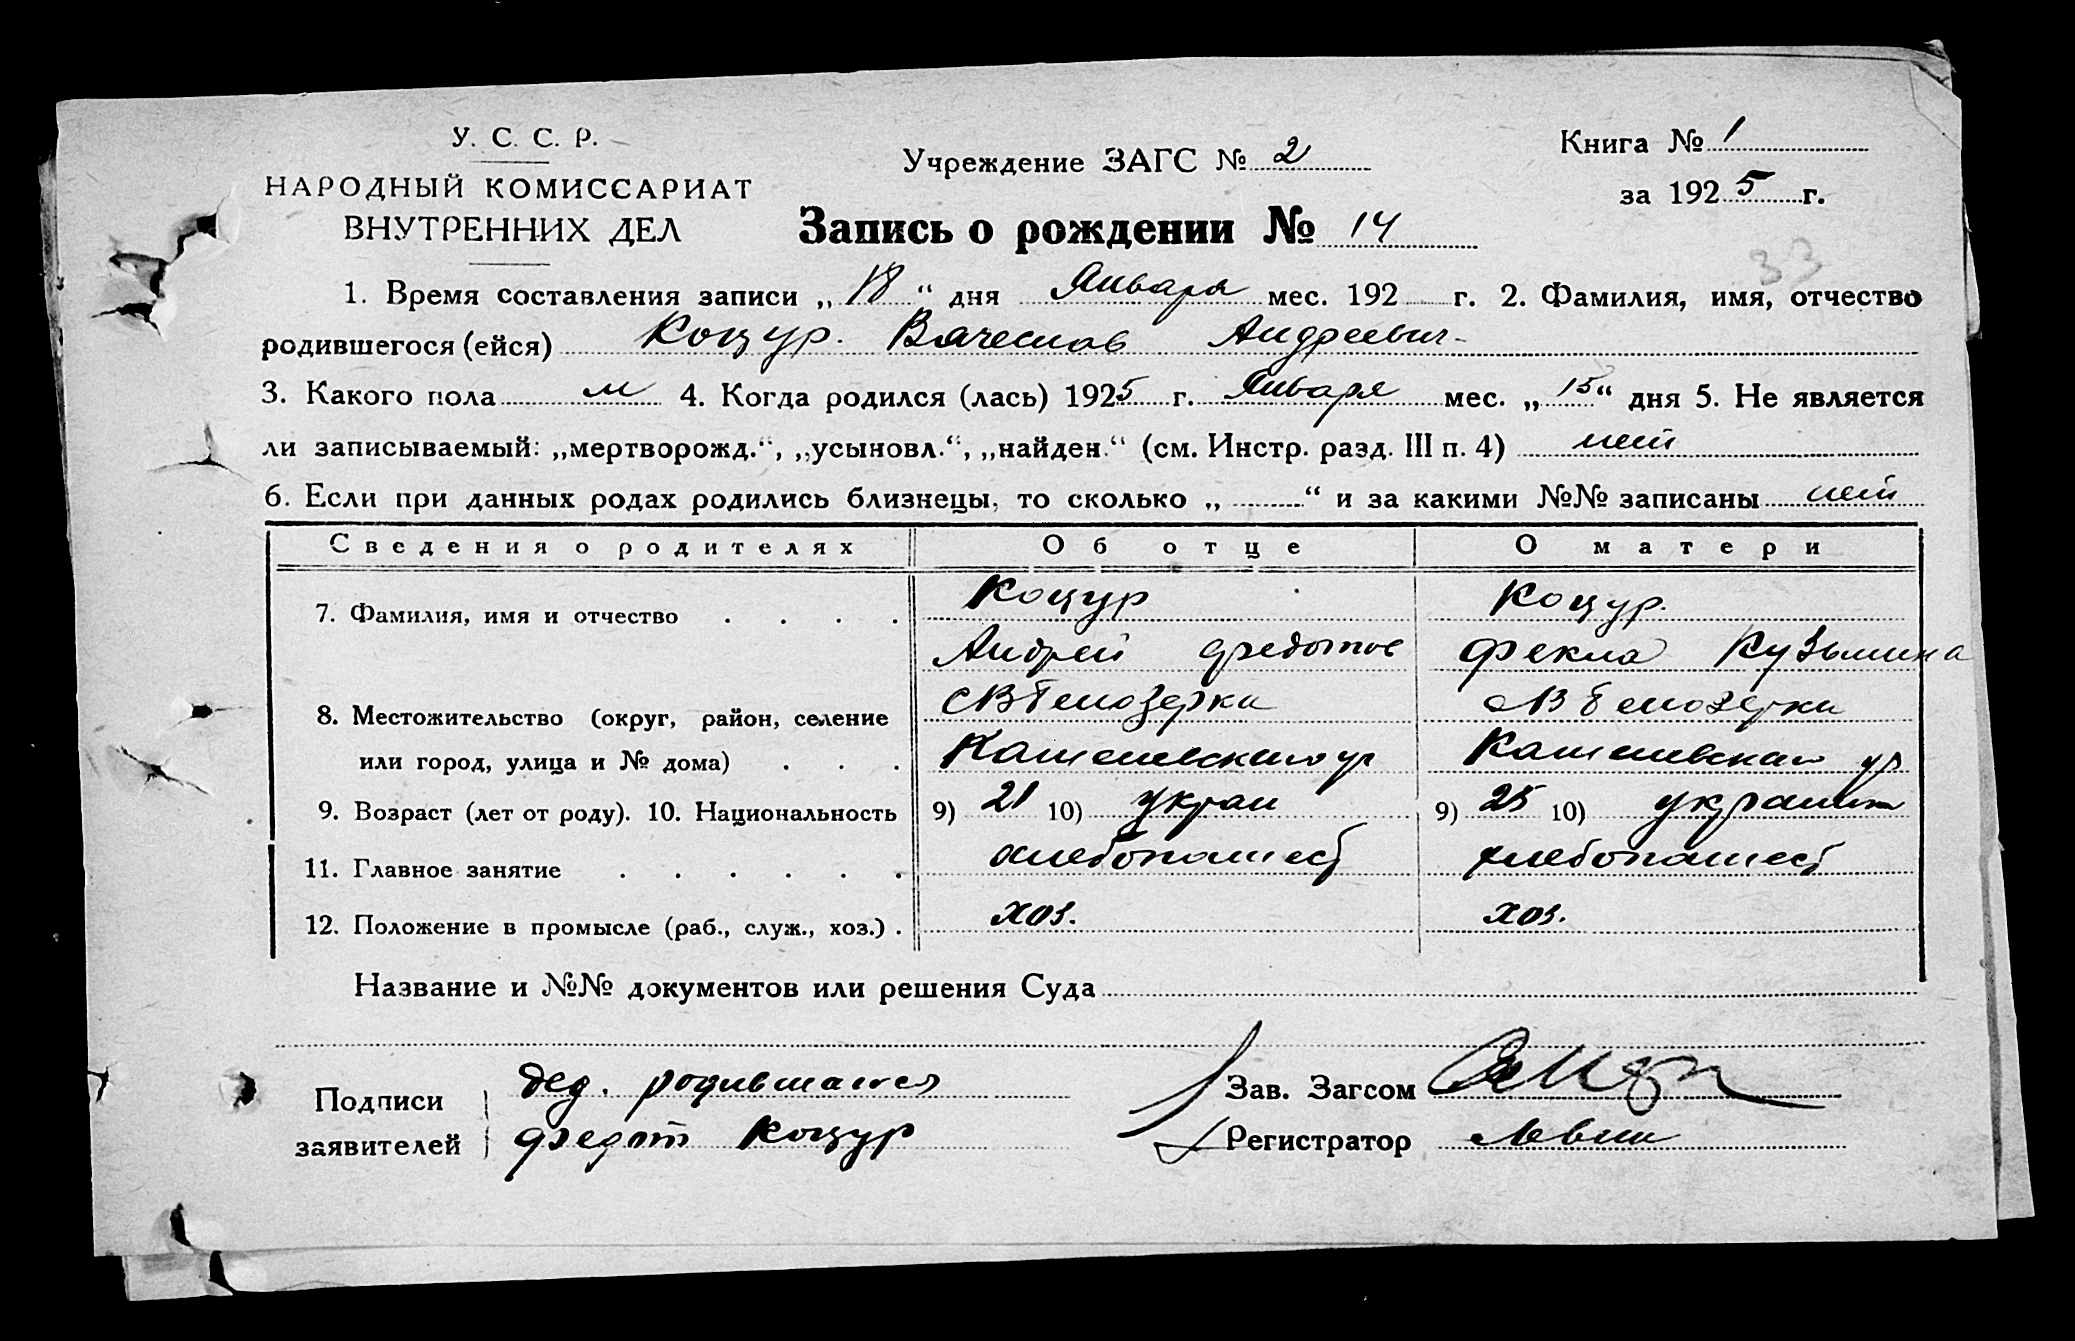 У. С. С. Р.
НАРОДНЫЙ КОМИССАРИАТ
ВНУТРЕННИХ ДЕЛ
Учреждение ЗАГС № 2
Книга № 1
за 1925 г.
Запись о рождении № 14
33
1. Время составления записи „18“ дня Января мес. 192 г. 2. Фамилия, имя, отчество
родившегося (ейся) Коцур. Вячеслав Андреевич
3. Какого пола м 4. Когда родился (лась) 1925 г. Января мес. „15“ дня 5. Не является
ли записываемый: „мертворожд.“, „усыновл.“, „найден.“ (см. Инстр. разд. III п. 4) нет
6. Если при данных родах родились близнецы, то сколько „ “ и за какими №№ записаны нет
Сведения о родителях Об отце О матери
7. Фамилия, имя и отчество Коцур Коцур.
Андрей Федотов Фекла Кузьмина
8. Местожительство (округ, район, селение Белозерки Белозерки
или город, улица и № дома)
9. Возраст (лет от роду). 10. Национальность 9) 21 10) укра 9) 25 10)
11. Главное занятие хлебопашест хлебопашест
12. Положение в промысле (раб., служ., хоз.) хоз. хоз.
Название и №№ документов или решения Суда
Подписи дед. Зав. Загсом
заявителей Федот Коцур Регистратор Левин